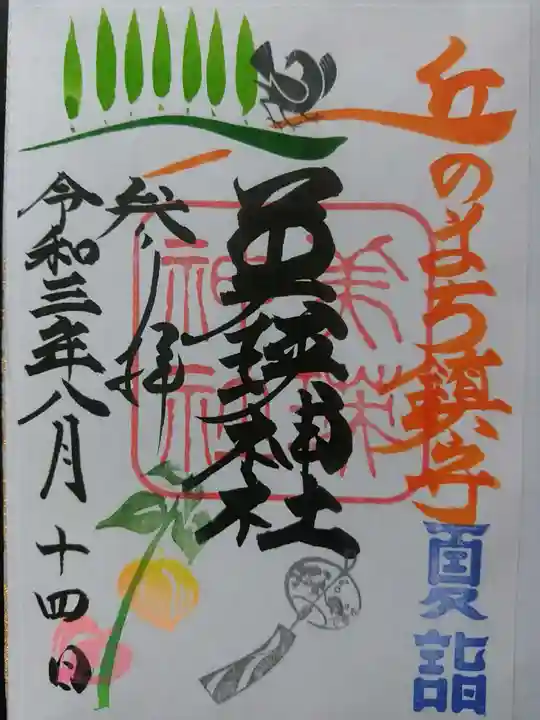 丘のまち鎮守
夏詣
美瑛神社
美瑛神社
参拝
令和三年八月十四日